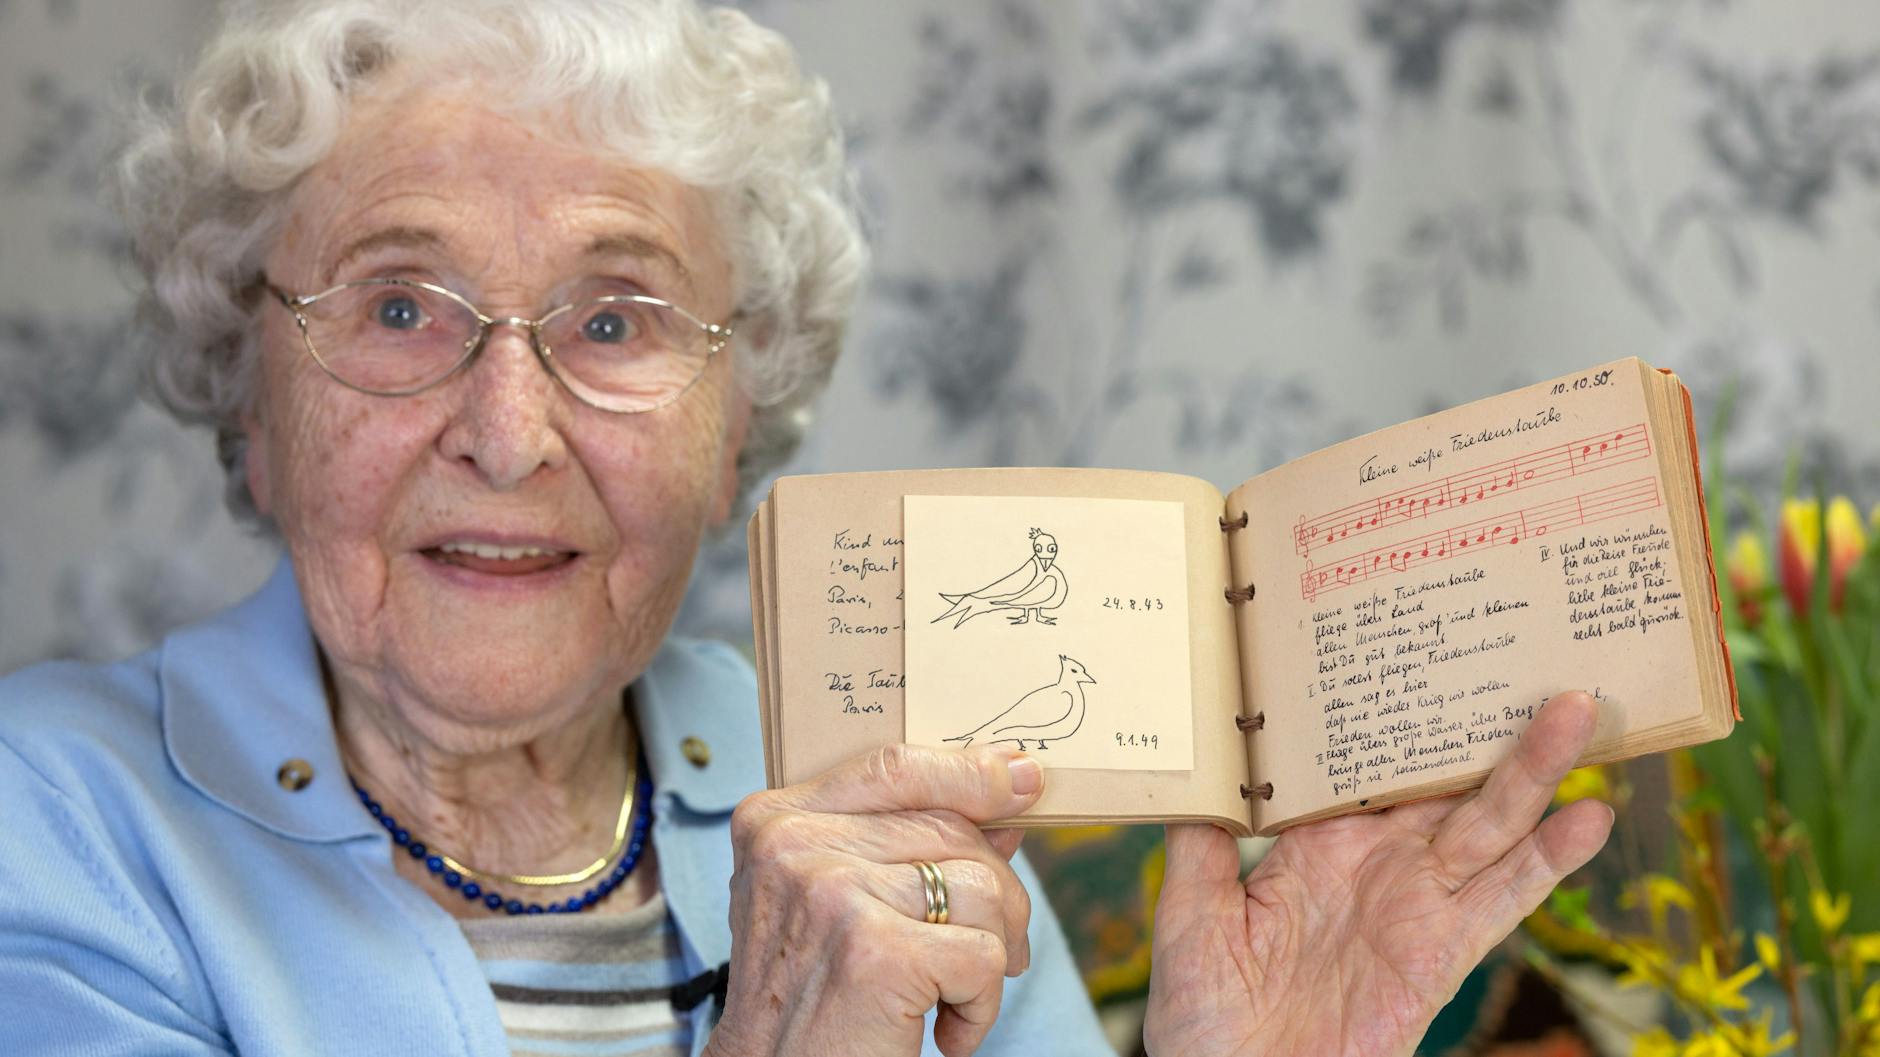 Kind un
L'enfant
Paris, 2
Picasso-
Die Taub
Paris
24.8.43
9.1.49
10.10.50.
Kleine weiße Friedenstaube
1. Kleine weiße Friedenstaube
fliege übers Land
allen Menschen, groß' und kleinen
bist Du gut bekannt.
I. Du sollst fliegen, Friedenstaube
allen sag es hier
daß nie wieder Krieg wir wollen
Frieden wollen wir.
III Fliege übers große Wasser, über Berg
bringe allen Menschen Frieden,
grüß sie tausendmal.
IV. Und wir wünschen
für die Reise Freude
und viel Glück;
liebe kleine Frie-
denstaube, komm
recht bald zurück.